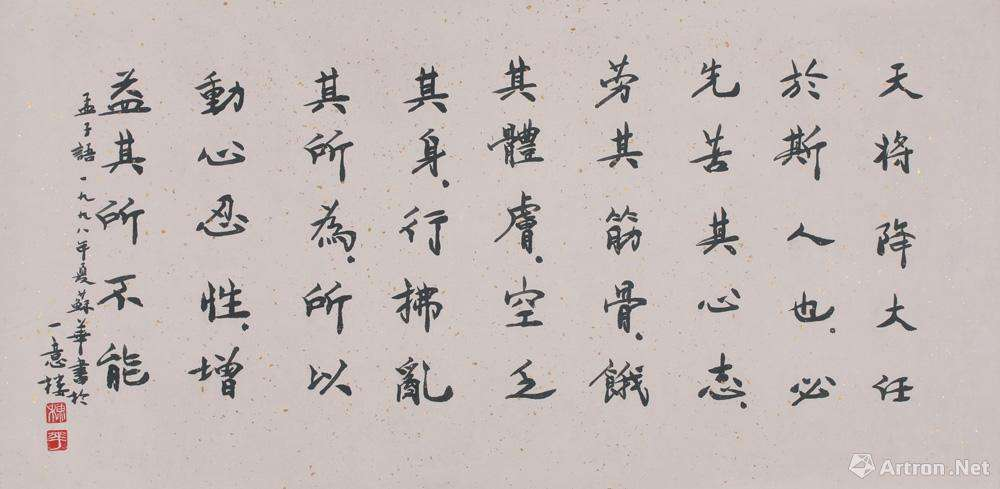 天将降大任
於斯人也.必
先苦其心志.
劳其筋骨.餓
其體膚.空乏
其身.行拂亂
其所為.所以
動心忍性.增
益其所不能
孟子語 一九九八年夏蘇華書於
一意楼
Artron.Net